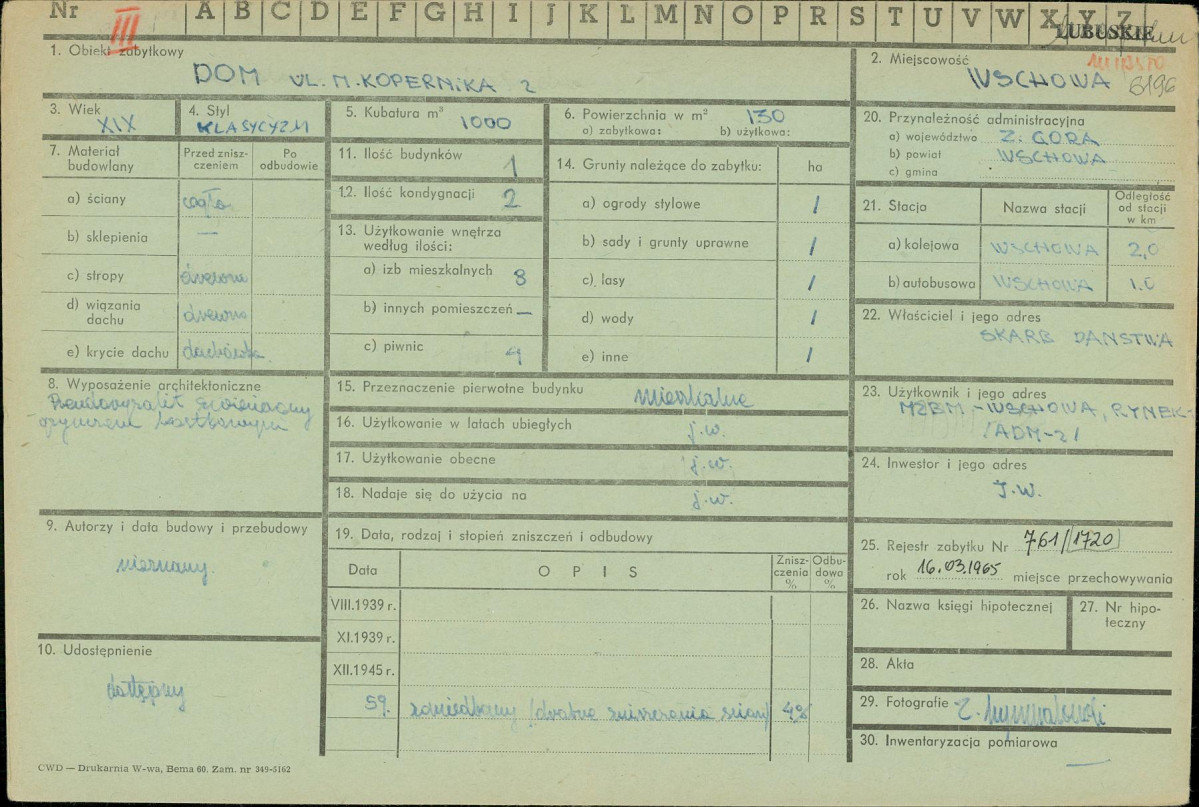 Nr III A B C D E F G H I J K L M N O P R S T U V W X Y Z
LUBUSKIE
1. Obiekt zabytkowy
DOM UL. M. KOPERNIKA 2
2. Miejscowość
WSCHOWA 6196
3. Wiek
XIX
4. Styl
KLASYCYZM
5. Kubatura m³ 1000
6. Powierzchnia w m² 130
a) zabytkowa: b) użytkowa:
7. Materiał budowlany
Przed zniszczeniem
Po odbudowie
a) ściany cegła
b) sklepienia —
c) stropy drewno
d) wiązania dachu drewno
e) krycie dachu dachówka
8. Wyposażenie architektoniczne
Pseudoryzalit zwieńczony
gzymsem kostkowym
9. Autorzy i data budowy i przebudowy
nieznany
10. Udostępnienie
dostępny
11. Ilość budynków 1
12. Ilość kondygnacji 2
13. Użytkowanie wnętrza
według ilości:
a) izb mieszkalnych 8
b) innych pomieszczeń —
c) piwnic 4
14. Grunty należące do zabytku: ha
a) ogrody stylowe /
b) sady i grunty uprawne /
c) lasy /
d) wody /
e) inne /
15. Przeznaczenie pierwotne budynku mieszkalne
16. Użytkowanie w latach ubiegłych j.w.
17. Użytkowanie obecne j.w.
18. Nadaje się do użycia na j.w.
19. Data, rodzaj i stopień zniszczeń i odbudowy
Data
OPIS
Zniszczenia %
Odbudowa %
VIII.1939 r.
XI.1939 r.
XII.1945 r.
59. zaniedbany /drobne zniszczenia ścian/ 4%
20. Przynależność administracyjna
a) województwo Z. GÓRA
b) powiat WSCHOWA
c) gmina
21. Stacja
Nazwa stacji
Odległość od stacji w km
a) kolejowa WSCHOWA 2,0
b) autobusowa WSCHOWA 1.0
22. Właściciel i jego adres
SKARB PAŃSTWA
23. Użytkownik i jego adres
MZBM - WSCHOWA, RYNEK-
/ADM-2/
24. Inwestor i jego adres
J.W.
25. Rejestr zabytku Nr 761/1720
rok 16.03.1965 miejsce przechowywania
26. Nazwa księgi hipotecznej
27. Nr hipoteczny
28. Akta
29. Fotografie Z.
30. Inwentaryzacja pomiarowa
—
CWD — Drukarnia W-wa, Bema 60. Zam. nr 349-5162